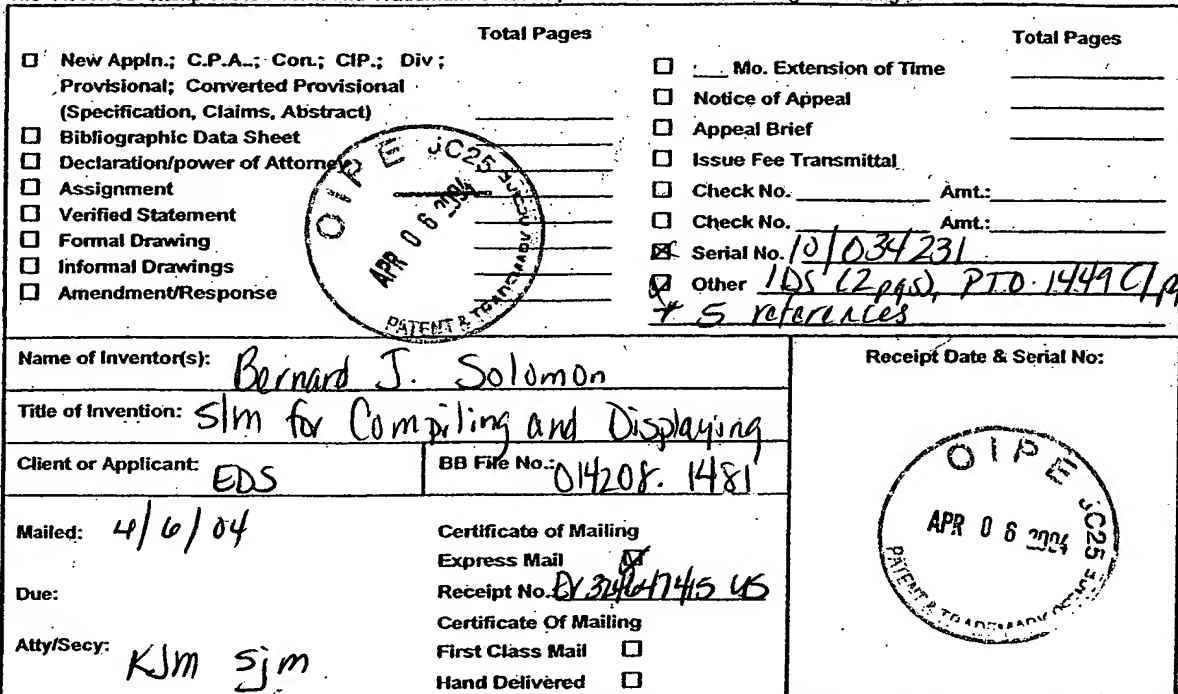 Total Pages
New Appln.; C.P.A..; Con.; CIP.; Div;
Provisional; Converted Provisional
(Specification, Claims, Abstract)
Bibliographic Data Sheet
Declaration/power of Attorney
Assignment
Verified Statement
Formal Drawing
Informal Drawings
Amendment/Response
OIPE JC25
APR 06 2004
PATENT & TRADEMARK
Total Pages
Mo. Extension of Time
Notice of Appeal
Appeal Brief
Issue Fee Transmittal
Check No. Amt.:
Check No. Amt.:
Serial No. 10/034231
Other IDS (2pgs), PTO-1449 (1 pg
+ 5 references
Name of Inventor(s): Bernard J. Solomon
Title of Invention: S/m for Compiling and Displaying
Client or Applicant: EDS
BB File No.: 014208.1481
Mailed: 4/6/04
Due:
Atty/Secy: KJM sjm
Certificate of Mailing
Express Mail
Receipt No. US
Certificate Of Mailing
First Class Mail
Hand Delivered
Receipt Date & Serial No:
OIPE JC25
APR 06 2004
PATENT & TRADEMARK OFFICE